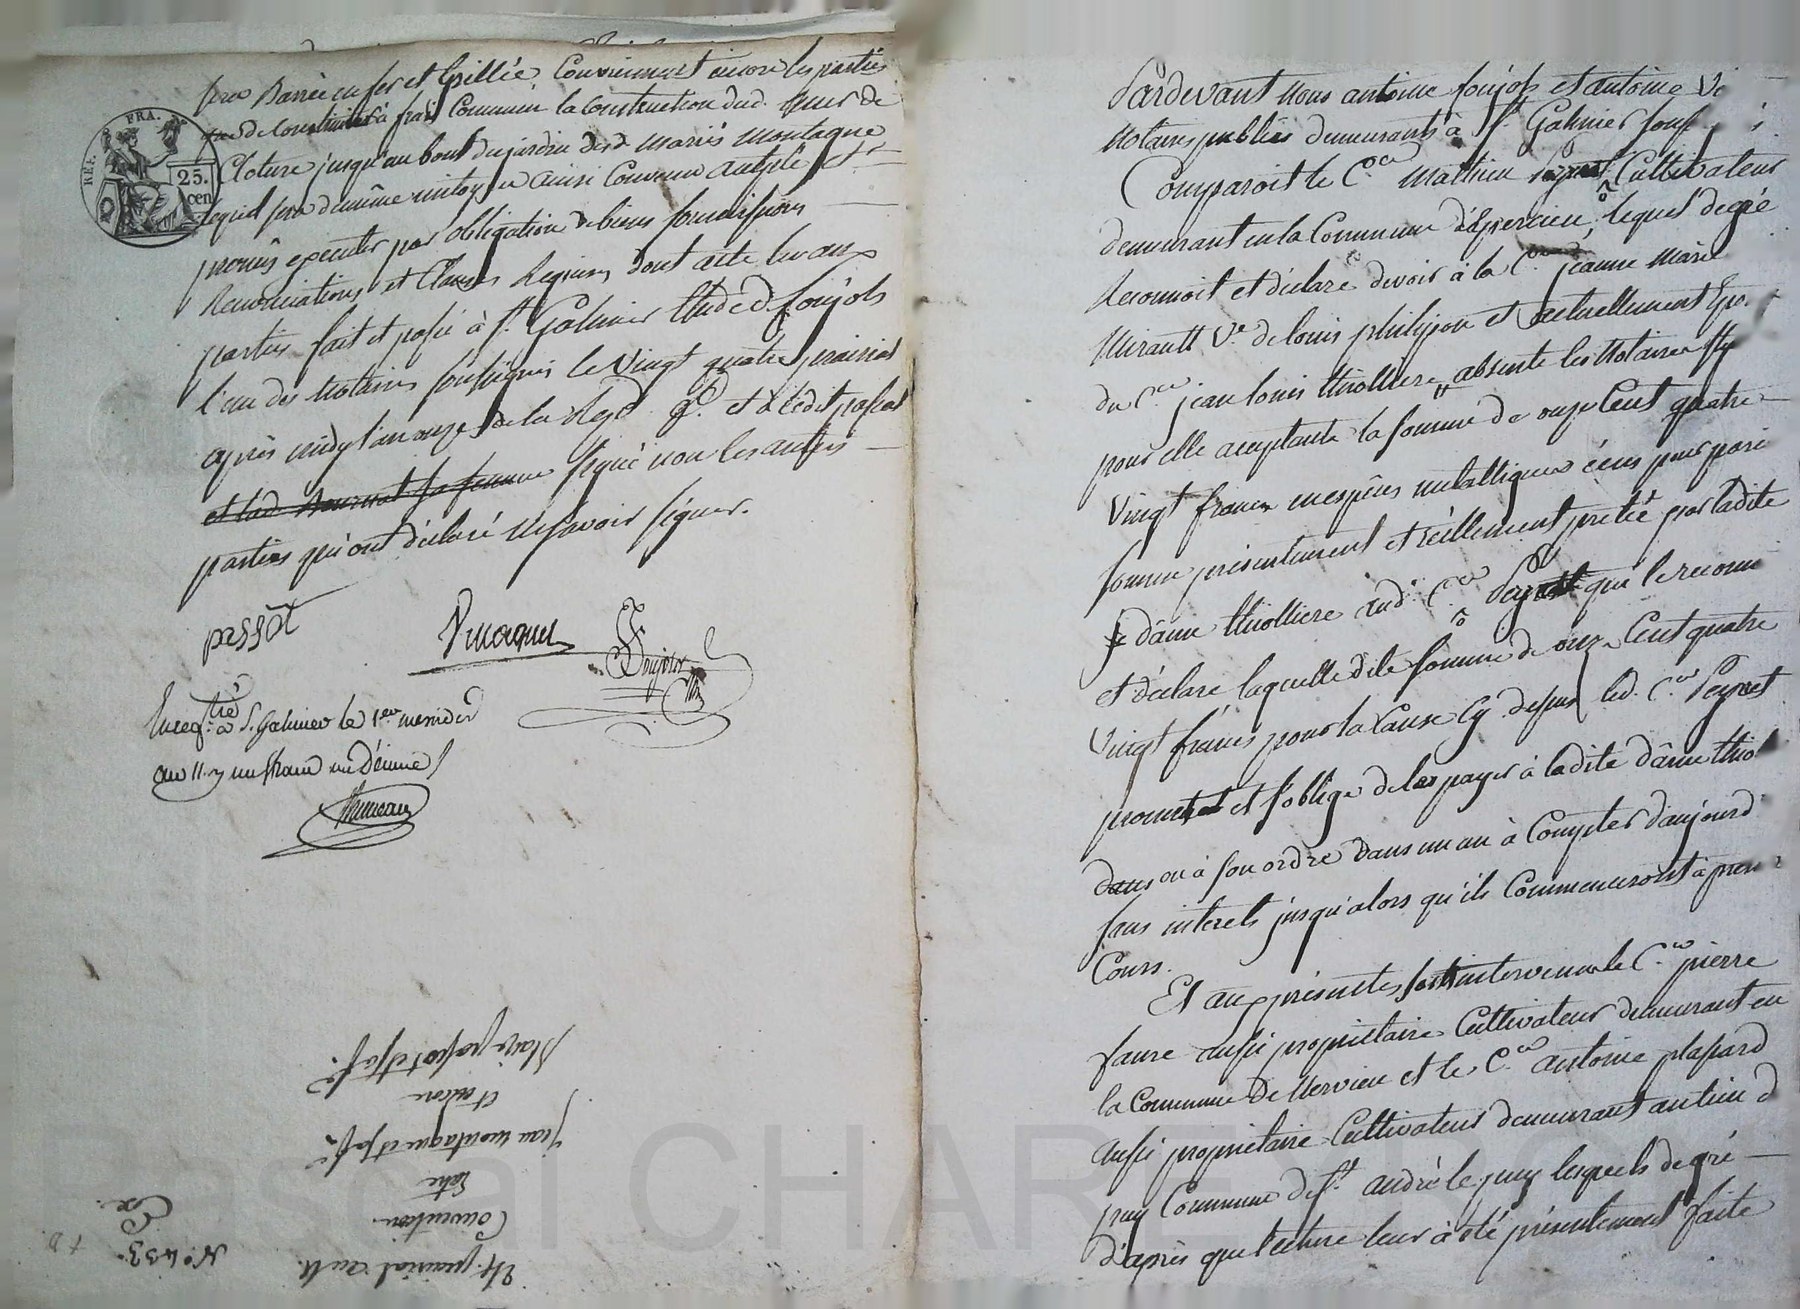 sera Barrée en fer et Grillée, Conviennent encore les parties
de Construire à frais Communs la Construction dud. mur de
Cloture jusqu'au bout du jardin desd. mariés montagne
lequel sera de même mitoyen ainsi Convenu accepté et
promis executer par obligation de biens soumissions
Renonciations et Clauses Requises, dont acte lu aux
parties fait et passé à St. Galmier Etude d. soujols
l'un des Notaires soussignés le Vingt quatre prairial
après midy l'an onze de la Rep. et a ledit passot
et lad. sa femme signé non les autres
parties qui ont déclaré ne savoir signer.
passot
Soujols
Enregtré à St. Galmier le 1er messidor
an 11 un franc un décime
REP. FRA.
25. cen
24. prairial an 11.
Convention
Entre
jean montagne et sa fe
et encore
Blaise passot et sa fe
No. 433.
Pardevant nous antoine soujols et antoine
Notaires publics demeurants à St. Galmier
Comparoit le Cen. Mathieu Peyret Cultivateur
demeurant en la Commune d'Epercieu, lequel de gré
Reconnoit et déclare devoir à la Cne. jeanne marie
Mirault Ve. de louis philipon et actuellement
du Cen. jean louis thiolliere, absente les Notaires
pour elle acceptants la somme de onze Cent quatre
Vingt francs en espèces métalliques
somme présentement et réellement pretée par ladite
dâme thiolliere aud. Cen. Peyret qui le reconnoit
et déclare laquelle dite somme de onze Cent quatre
Vingt francs pour la Cause Cy depuis led. Cen. Peyret
promet et s'oblige de les payer à ladite dâme
ou à son ordre dans un an à Compter d'aujourd
sans interets jusqu'alors qu'ils Commenceront à
Cours.
Et aux présentes sont intervenus le Cen. pierre
faure aussi propriétaire Cultivateur demeurant en
la Commune de Nervieu et le Cen. antoine plassard
aussi propriétaire Cultivateur demeurant au lieu
puy Commune de St. andré le puy lesquels de gré
d'après que lecture leur a été présentement faite
Pascal CHARE